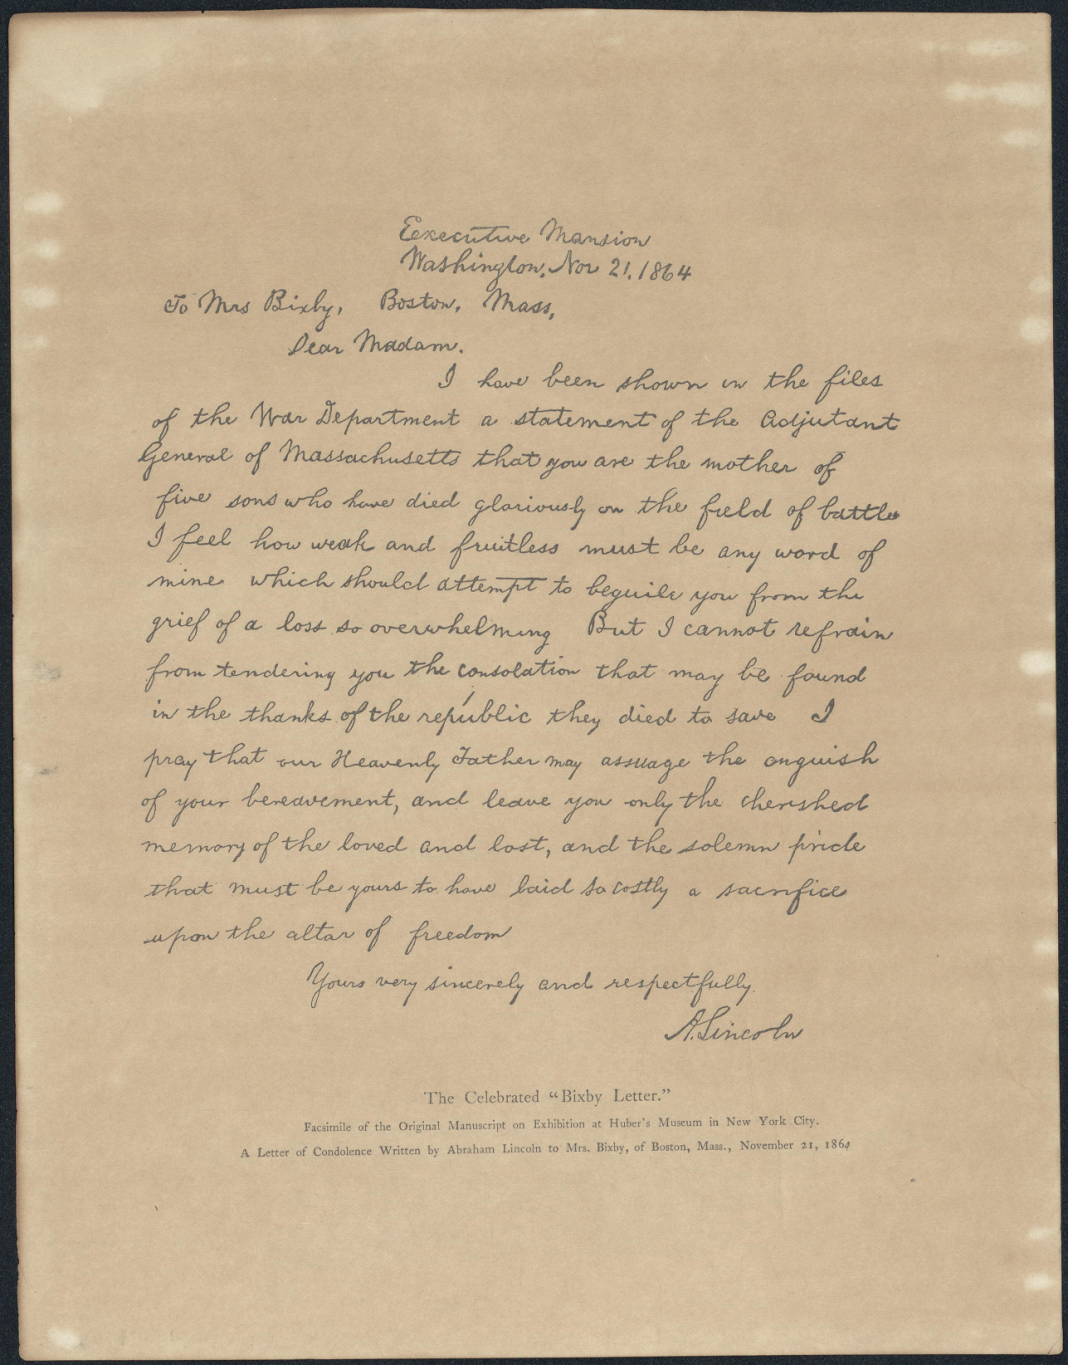 Executive Mansion
Washington, Nov 21, 1864
To Mrs Bixby, Boston, Mass,
Dear Madam.
I have been shown in the files
of the War Department a statement of the Adjutant
General of Massachusetts that you are the mother of
five sons who have died gloriously on the field of battle
I feel how weak and fruitless must be any word of
mine which should attempt to beguile you from the
grief of a loss so overwhelming But I cannot refrain
from tendering you the consolation that may be found
in the thanks of the republic they died to save I
pray that our Heavenly Father may assuage the anguish
of your bereavement, and leave you only the cherished
memory of the loved and lost, and the solemn pride
that must be yours to have laid so costly a sacrifice
upon the altar of freedom
Yours very sincerely and respectfully.
A. Lincoln
The Celebrated “Bixby Letter.”
Facsimile of the Original Manuscript on Exhibition at Huber's Museum in New York City.
A Letter of Condolence Written by Abraham Lincoln to Mrs. Bixby, of Boston, Mass., November 21, 1864